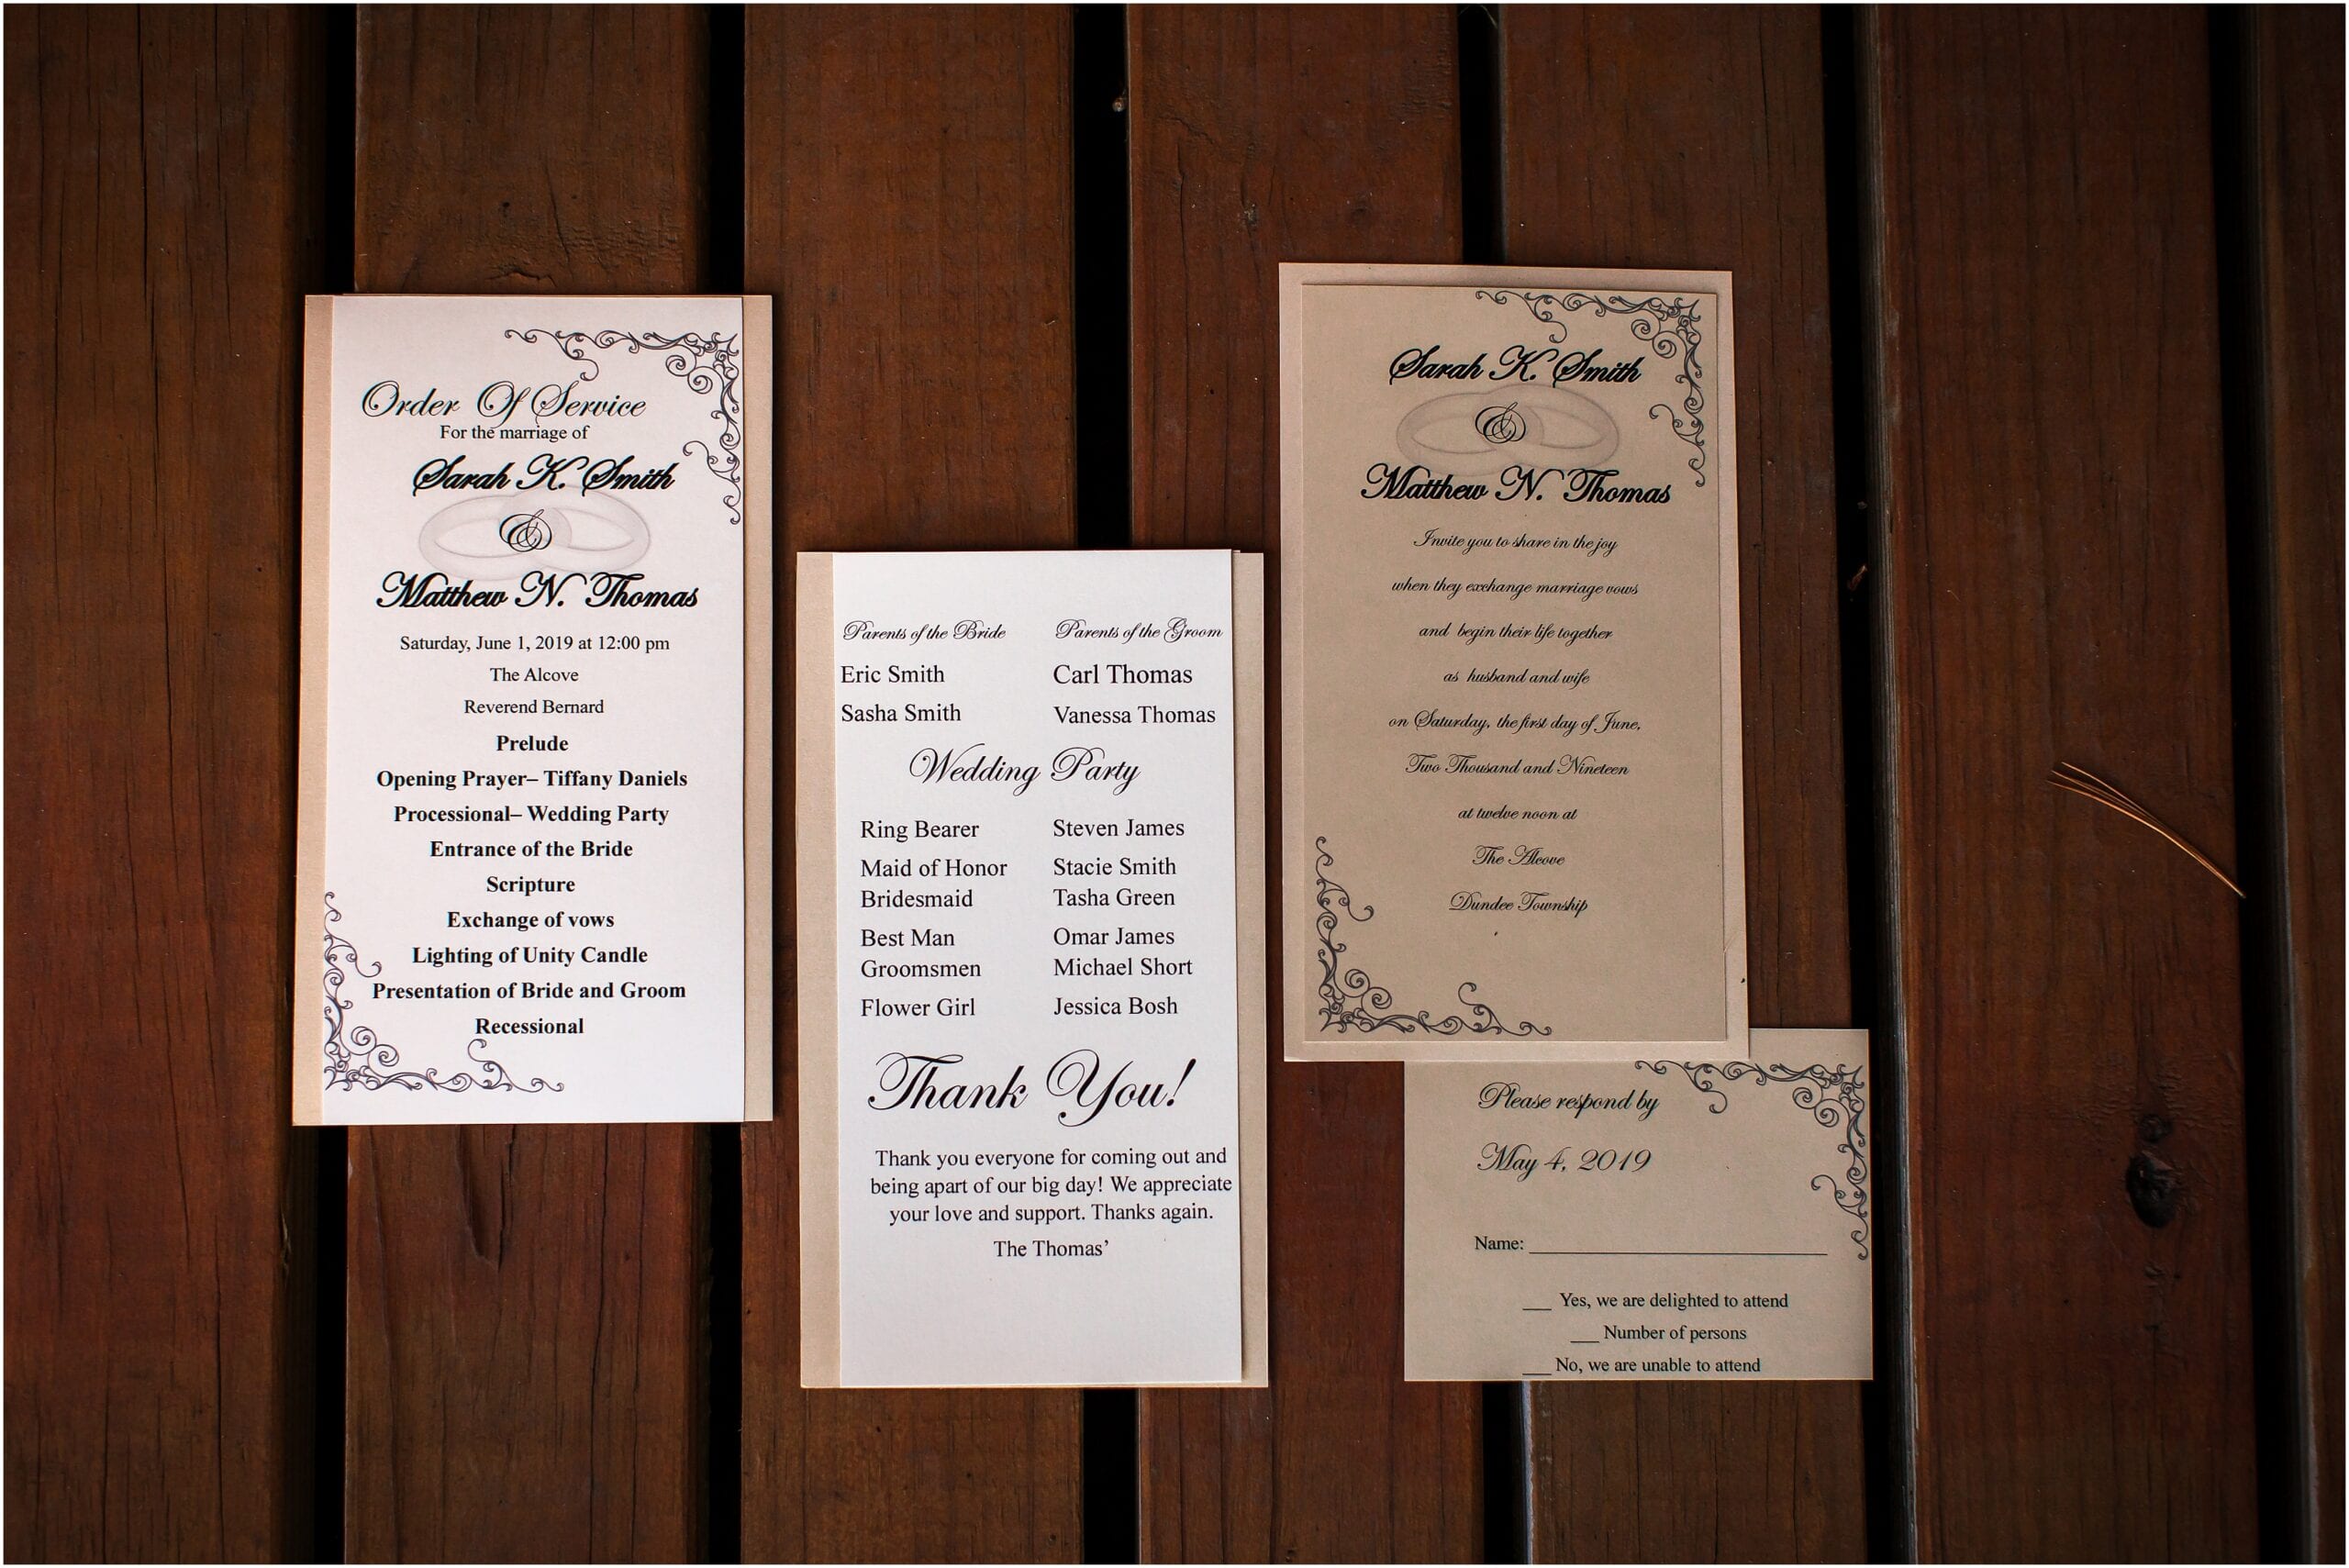 Order Of Service
For the marriage of
Sarah K. Smith
&
Matthew N. Thomas
Saturday, June 1, 2019 at 12:00 pm
The Alcove
Reverend Bernard
Prelude
Opening Prayer– Tiffany Daniels
Processional– Wedding Party
Entrance of the Bride
Scripture
Exchange of vows
Lighting of Unity Candle
Presentation of Bride and Groom
Recessional
Parents of the Bride Parents of the Groom
Eric Smith Carl Thomas
Sasha Smith Vanessa Thomas
Wedding Party
Ring Bearer Steven James
Maid of Honor Stacie Smith
Bridesmaid Tasha Green
Best Man Omar James
Groomsmen Michael Short
Flower Girl Jessica Bosh
Thank You!
Thank you everyone for coming out and
being apart of our big day! We appreciate
your love and support. Thanks again.
The Thomas’
Sarah K. Smith
&
Matthew N. Thomas
Invite you to share in the joy
when they exchange marriage vows
and begin their life together
as husband and wife
on Saturday, the first day of June,
Two Thousand and Nineteen
at twelve noon at
The Alcove
Dundee Township
Please respond by
May 4, 2019
Name: ______________________________
___ Yes, we are delighted to attend
___ Number of persons
___ No, we are unable to attend